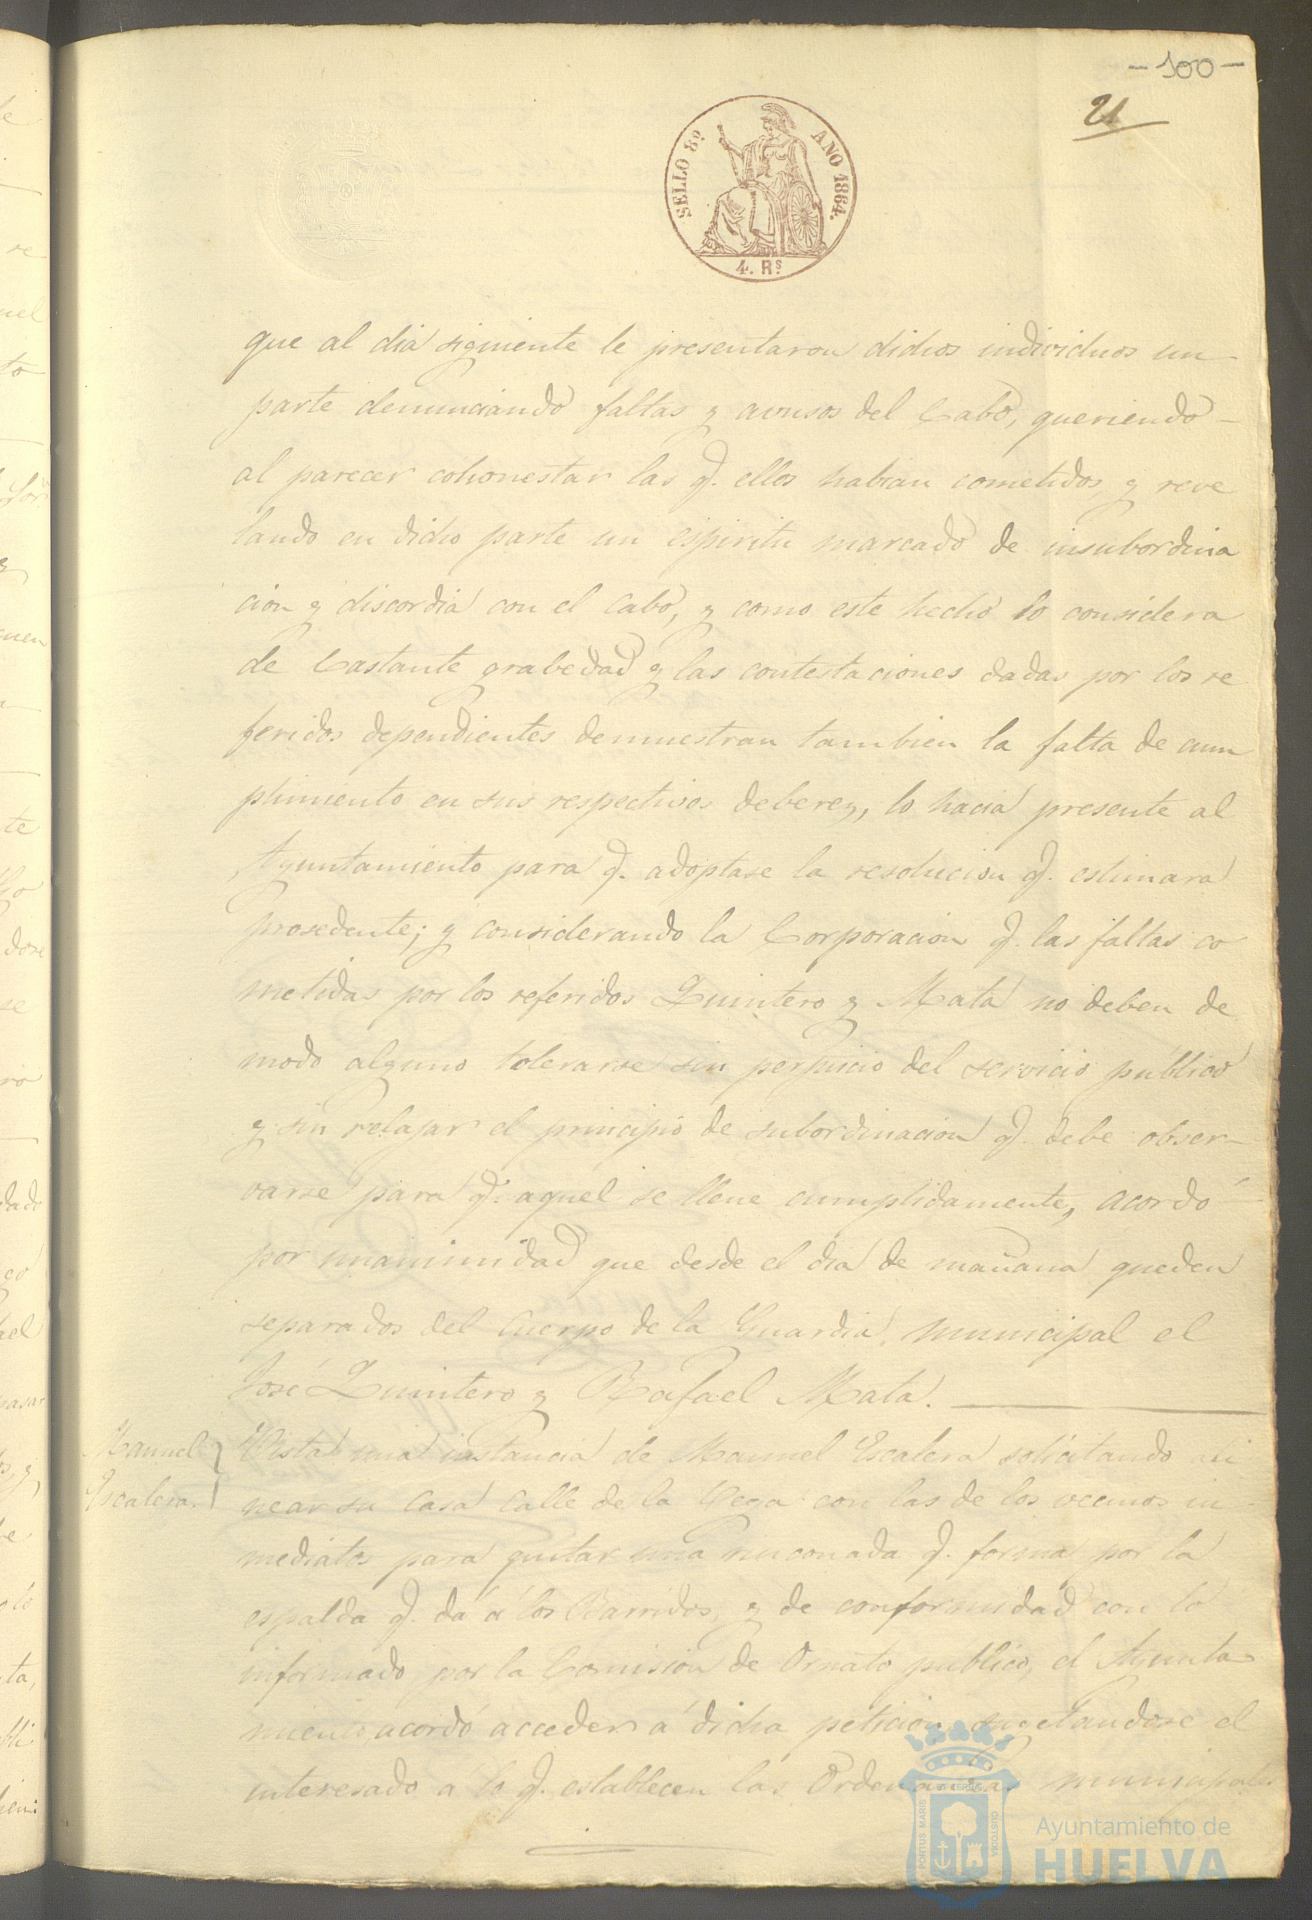 - 100 -
21
SELLO 8º AÑO 1864.
4. Rˢ
que al dia siguiente le presentaron dichos individuos un
parte denunciando faltas y avusos del Cabo, queriendo
al parecer cohonestar las q. ellos habian cometidos, y reve
lando en dicho parte un espiritu marcado de insubordina
cion y discordia con el Cabo, y como este hecho lo considera
de bastante grabedad y las contestaciones dadas por los re
feridos dependientes demuestran tambien la falta de cum
plimiento en sus respectivos deberes, lo hacia presente al
Ayuntamiento para q. adoptase la resolucion q. estimara
prosedente; y considerando la Corporacion q. las faltas co
metidas por los referidos Quintero y Mata no deben de
modo alguno tolerarse sin perjuicio del servicio público
y sin relajar el principio de subordinacion q. debe obser-
varse para q. aquel se llene cumplidamente, acordó
por unanimidad que desde el dia de mañana queden
separados del Cuerpo de la Guardia municipal el
José Quintero y Rafael Mata.
Manuel
Escalera.
Vista una instancia de Manuel Escalera solicitando ali
near su casa calle de la Vega con las de los vecinos in-
mediatos para quitar una rinconada q. forma por la
espalda q. da á los Barridos, y de conformidad con lo
informado por la Comision de Ornato público, el Ayunta
miento acordó acceder á dicha peticion sugetandose el
interesado a lo q. establecen las Ordenanzas municipales
PORTUS MARIS ET TERRAE CUSTODIA
Ayuntamiento de
HUELVA